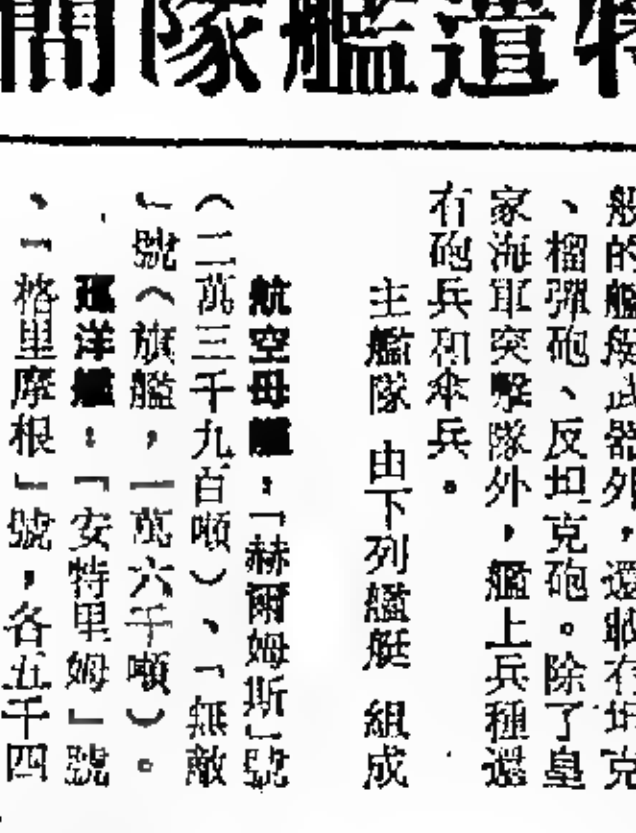 特遣艦隊
般的艦艇武器外，還載有坦克
、榴彈砲、反坦克砲。除了皇
家海軍突擊隊外，艦上兵種還
有砲兵和傘兵。
主艦隊 由下列艦艇 組成
航空母艦：「赫爾姆斯」號
（二萬三千九百噸）、「無敵
」號（旗艦，一萬六千噸）。
巡洋艦：「安特里姆」號
、「格里摩根」號，各五千四